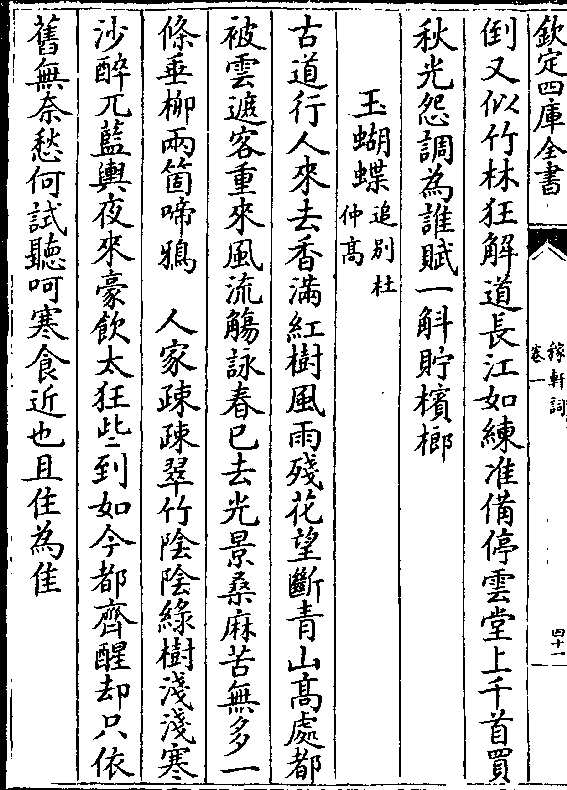 欽定四庫全書
稼軒詞
卷一
四十一
倒又似竹林狂解道長江如練准備停雲堂上千首買
秋光怨調為誰賦一斛貯檳榔
玉蝴蝶追別杜仲高
古道行人來去香滿紅樹風雨殘花望斷青山髙處都
被雲遮客重來風流觴詠春已去光景桑麻苦無多一
條垂柳兩箇啼鴉　人家疎疎翠竹隂隂綠樹淺淺寒
沙醉兀藍輿夜來豪飲太狂些到如今都齊醒却只依
舊無奈愁何試聽呵寒食近也且住為佳